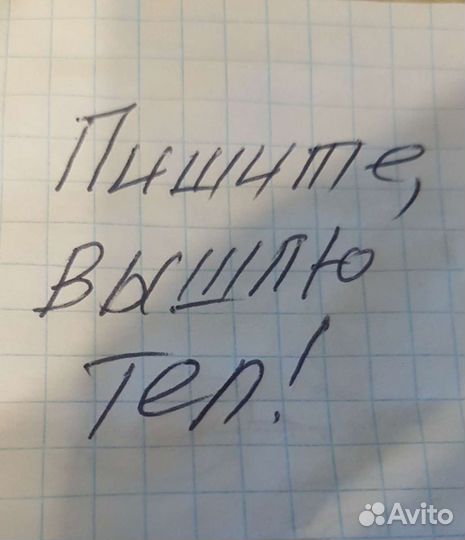 Пишите,
вышлю
тел!
Avito